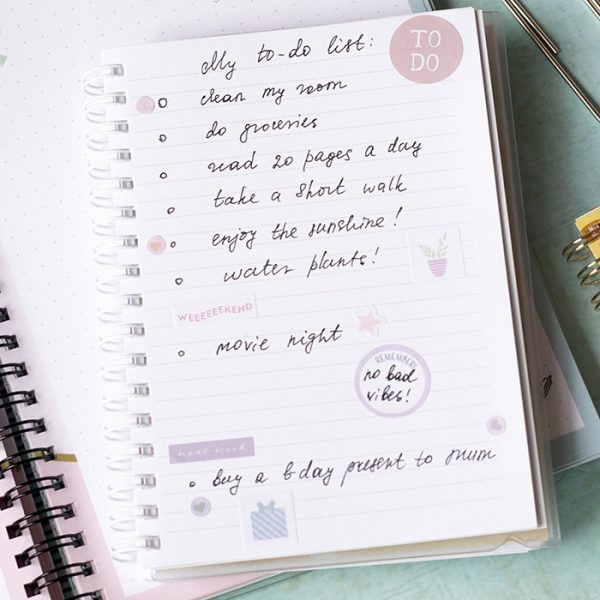 TO
DO
My to-do list:
clean my room
do groceries
read 20 pages a day
take a short walk
enjoy the sunshine!
water plants!
WEEEEEEKEND
movie night
REMEMBER!
no bad
vibes!
next week
buy a b-day present to mum